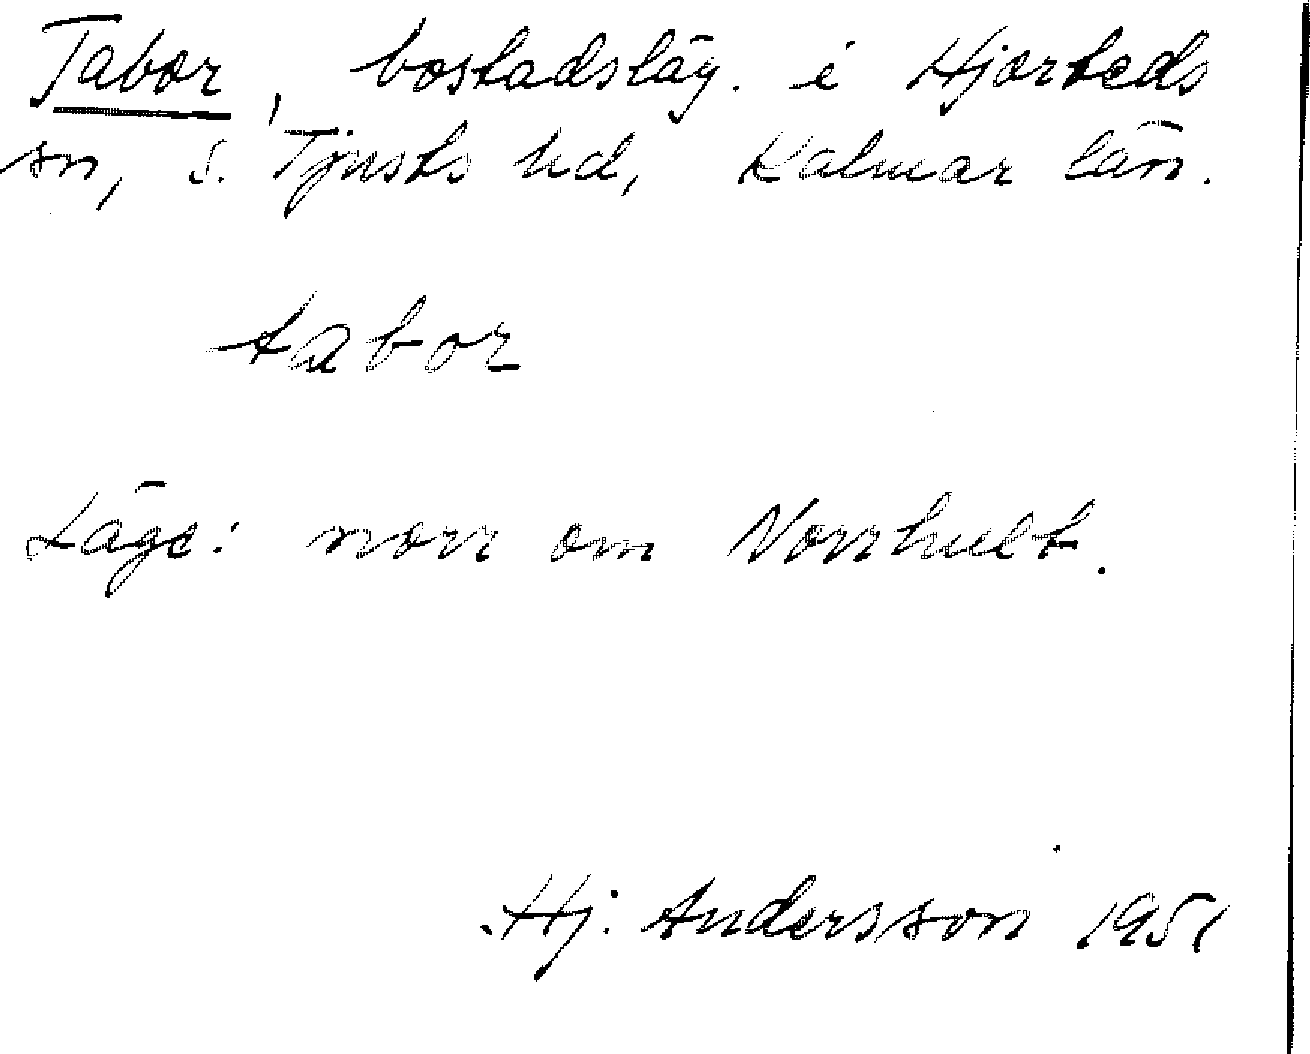 Tabor, bostadsläg. i Hjorteds
sn, S. Tjusts hd, Kalmar län.
tabor
Läge: norr om Norrhult.
Hj. Andersson 1951